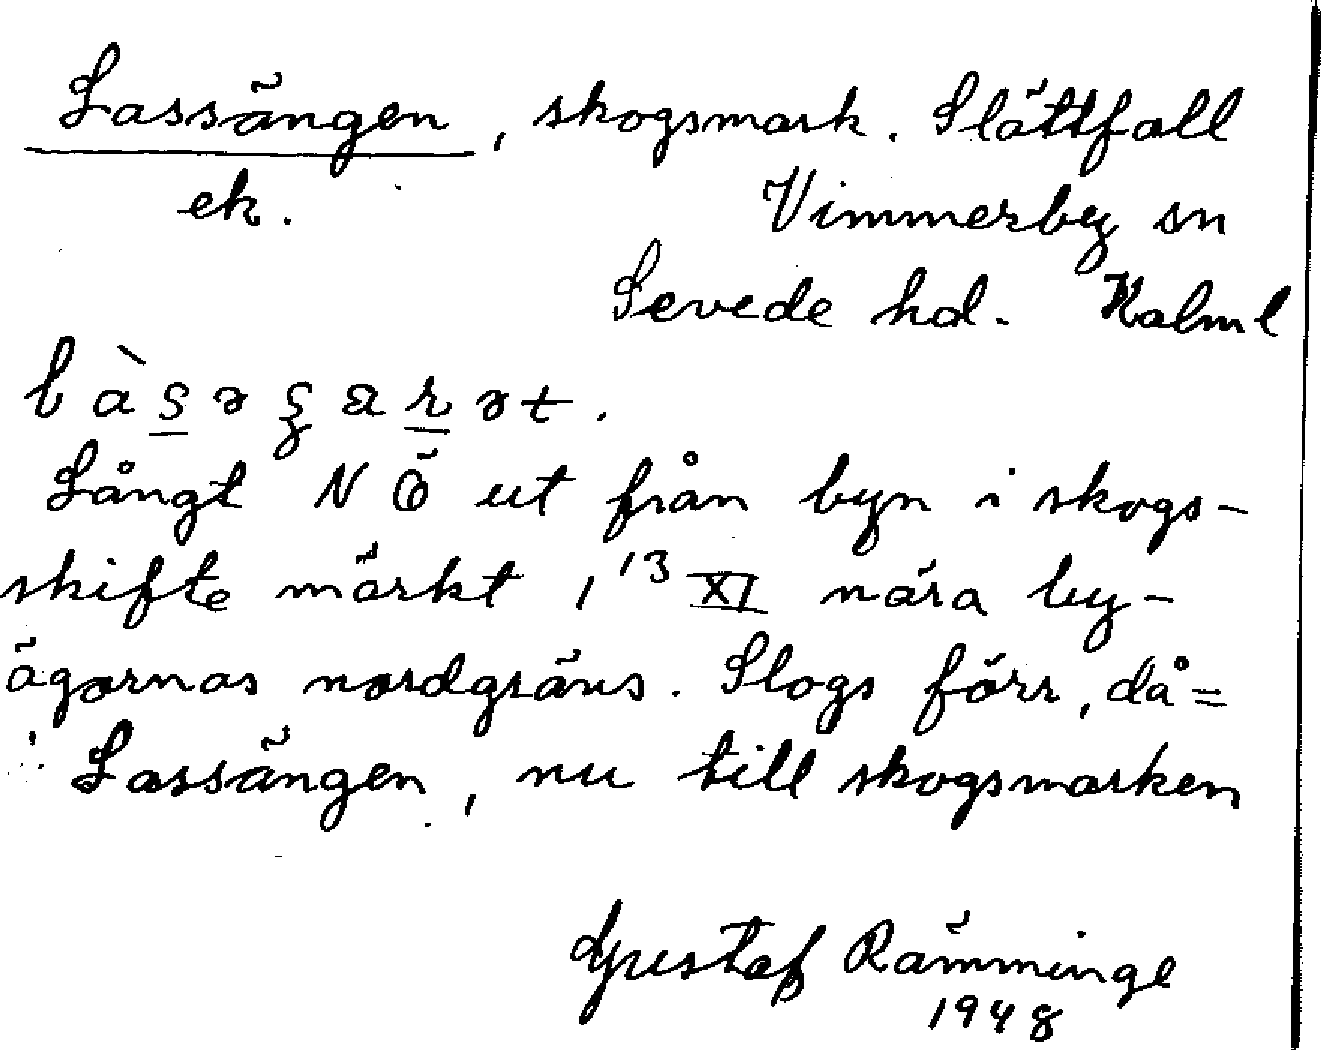 Lassängen, skogsmark. Slättfall
ek. Vimmerby sn
Sevede hd. Kalm l
Långt N Ö ut från byn i skogs-
skifte märkt 1 13 XI nära by-
ägornas nordgräns. Slogs förr, då =
Lassängen, nu till skogsmarken
Gustaf Rämminge
1948